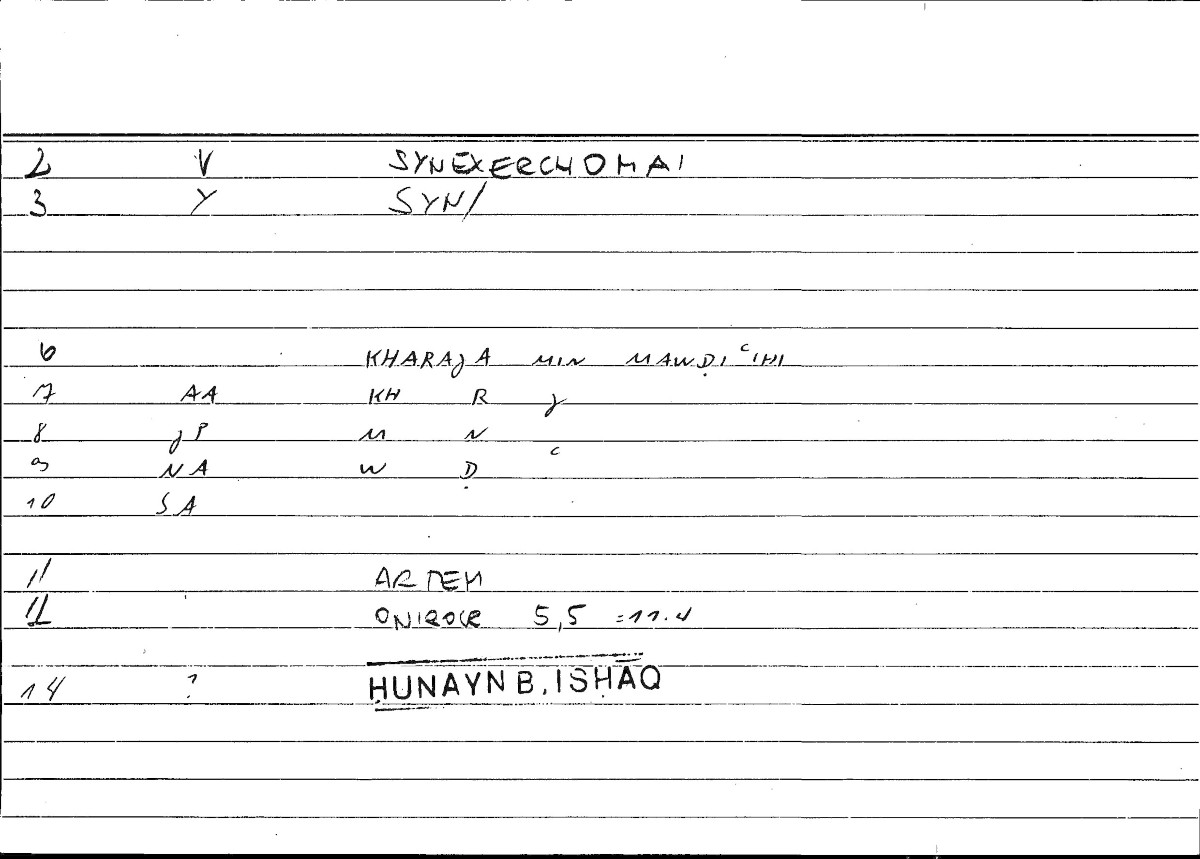 2 V SYNEXERCHOMAI
3 Y SYN/
6 KHARAJA MIN MAWḌIʿIHI
7 AA KH R J
8 JP M N
9 NA W Ḍ ʿ
10 SA
11 ARTEM
12 ONIROCR 5,5 =11.4
14 ? ḤUNAYN B. ISḤĀQ